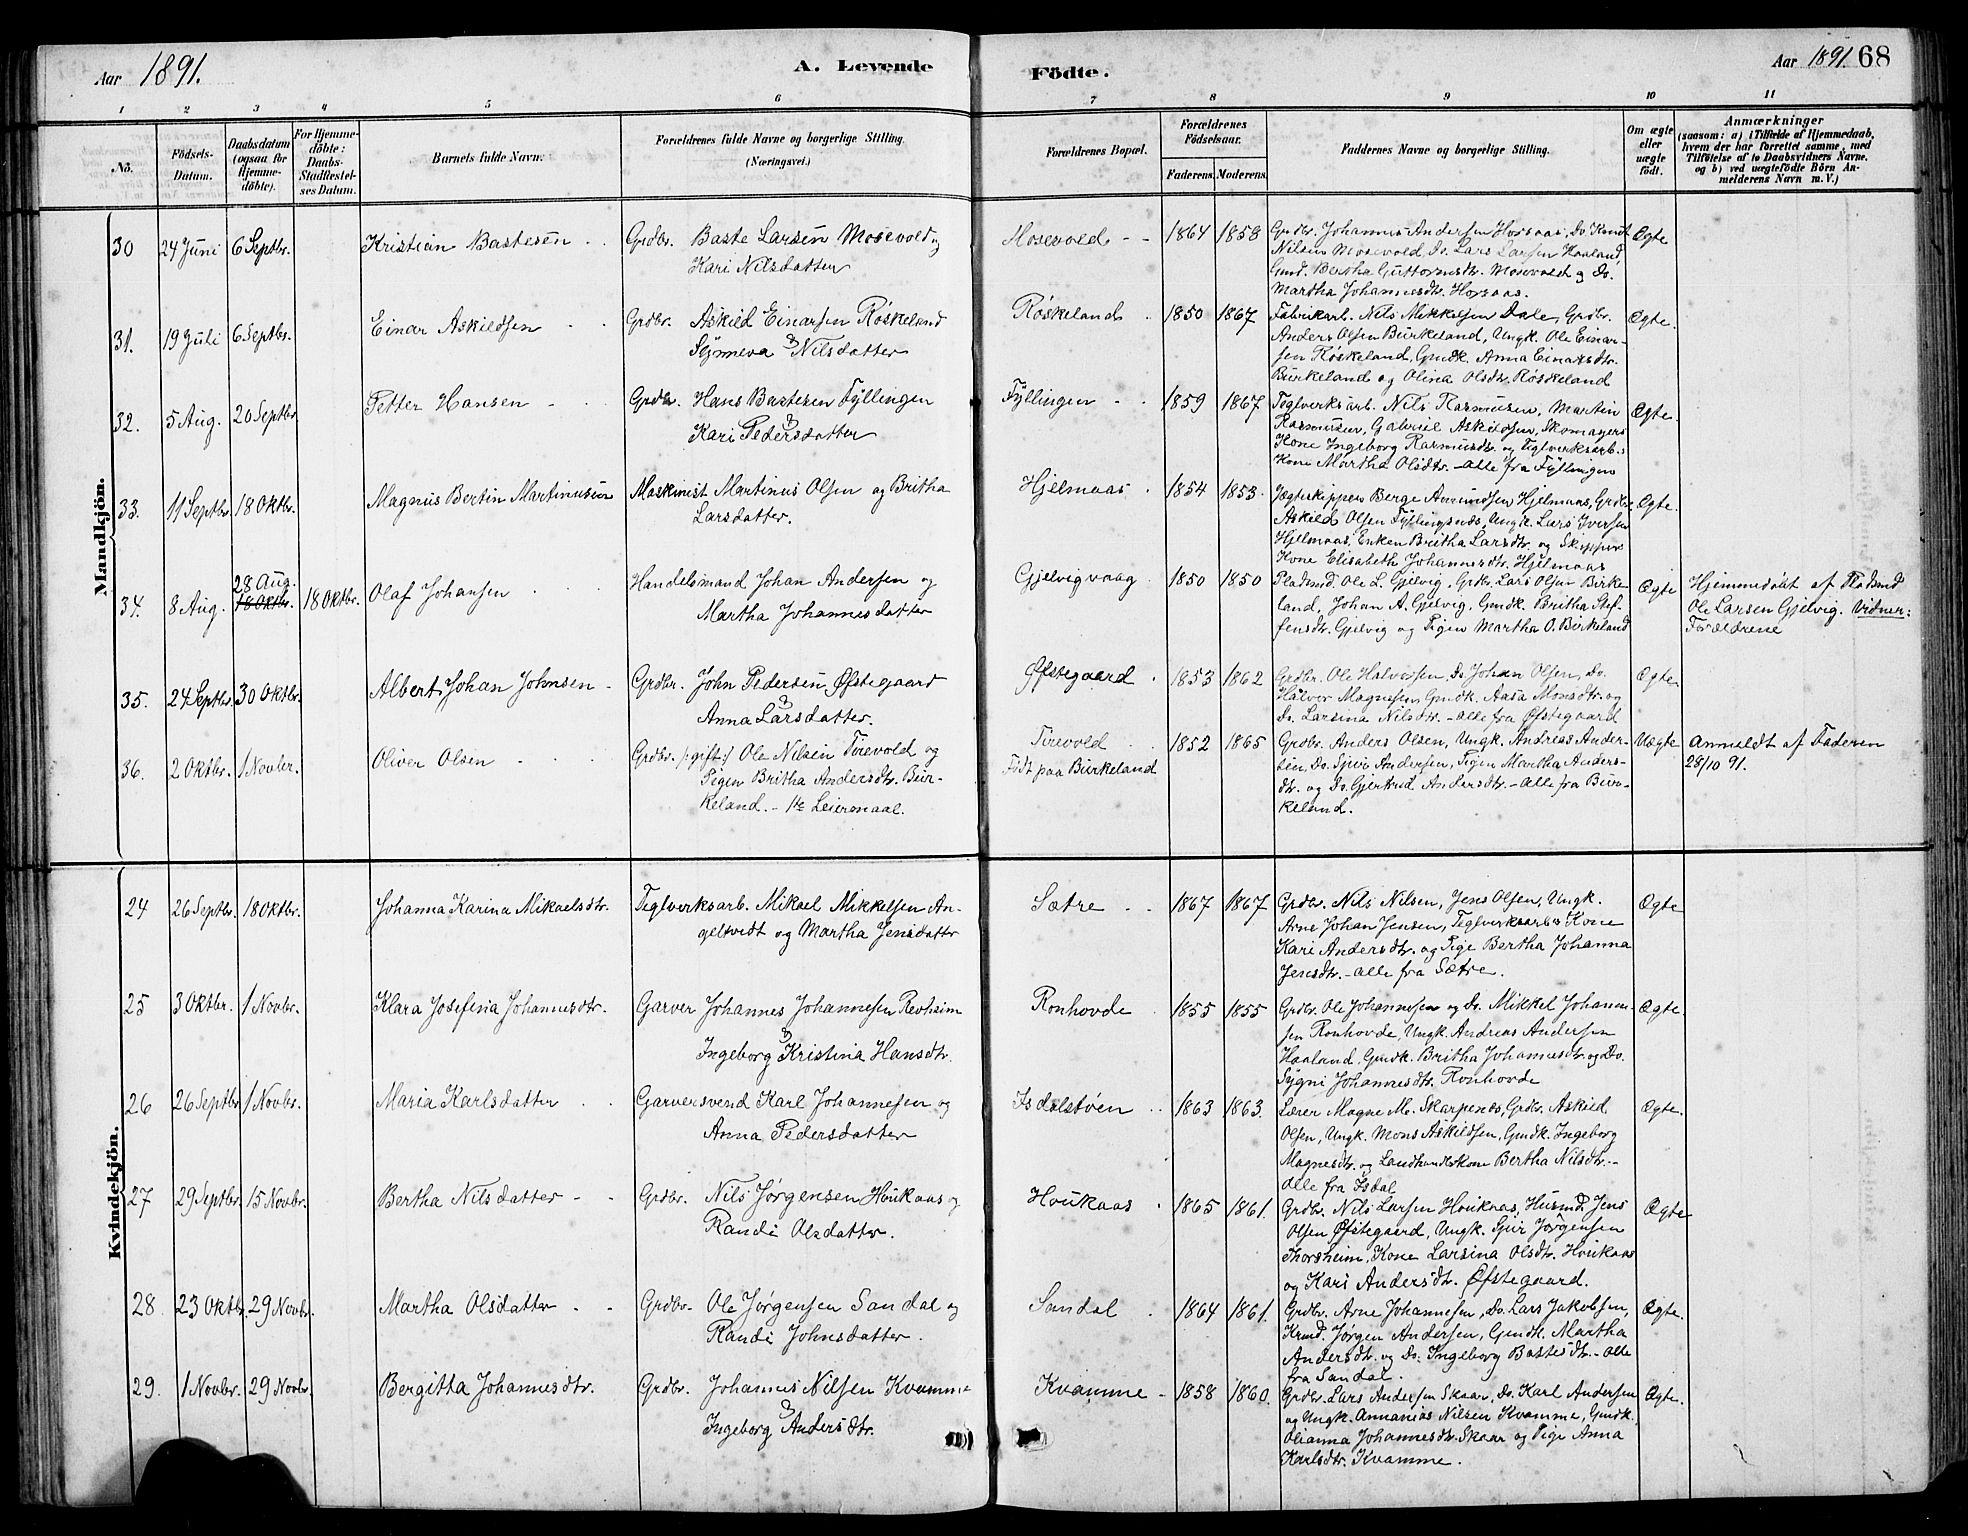 Aar 1891. A. Levende Födte. Aar 1891. 68
1 2 3 4 5 6 7 8 9 10 11
No. Födsels-Datum. Daabsdatum (ogsaa for Hjemmedöbte). For Hjemmedöbte: Daabs-Stadfæstelses Datum. Barnets fulde Navn. Forældrenes fulde Navne og borgerlige Stilling. (Næringsvei.) Forældrenes Bopæl. Forældrenes Födselsaar. Faderens. Moderens. Faddernes Navne og borgerlige Stilling. Om ægte eller uægte födt. Anmærkninger (saasom: a) i Tilfælde af Hjemmedaab, hvem der har forrettet samme, med Tilföielse af to Daabsvidners Navne, og b) ved uægtefödte Börn Anmelderens Navn m. V.)
Mandkjön.
30 24 Juni 6 Septbr. Kristian Bastesen Grdbr. Baste Larsen Mosevold og Mosevold 1864 1858 Grdbr. Johannes Andersen Horsaas, Do Knut Ægte
Kari Nilsdatter Nilsen Mosevold, Do. Lars Larsen Haaland,
Gmd. Bertha Guttormsdtr. Mosevold og Do.
Martha Johannesdtr. Horsaas.
31. 19 Juli 6 Septbr. Einar Askildsen Grdbr. Askild Einarsen Røskeland Røskeland 1850 1867 Fabrikarb. Nils Mikkelsen Dale, Grdbr. Ægte.
og
Synneva Nilsdatter Anders Olsen Burkeland, Ungk. Ole Einar-
sen Røskeland, Gmdk. Anna Einarsdtr.
Burkeland og Olina Olsdtr. Røskeland
32. 5 Aug. 20 Septbr. Petter Hansen Grdbr. Hans Bastesen Fyllingen Fyllingen 1859 1867 Teglverksarb. Nils Rasmusen, Martin Ægte.
og
Kari Pedersdatter Rasmusen, Gabriel Askildsen, Skomagers
Kone Ingeborg Rasmusdtr. og Teglverksarb.s
Kone Martha Olsdtr. - alle fra Fyllingen
33. 11 Septbr. 18 Oktbr. Magnus Bertin Martinusen Maskinist Martinus Olsen og Britha Hjelmaas 1854 1853. Jægteskipper Berge Amundsen Hjelmaas, Grdbr. Ægte.
Larsdatter. Askild Olsen Fyllingsnæs, Ungk. Lars Iversen
Hjelmaas, Enken Britha Larsdtr. og Skippers
Kone Elisabeth Johannesdtr. Hjelmaas
34. 8 Aug. 28 Aug. 18 Oktbr. 18 Oktbr. Olaf Johansen Handelsmand Johan Andersen og Gjelvigvaag 1850 1850 Pladsmd Ole L. Gjelvig, Grdbr. Lars Olsen Birke- Ægte Hjemmedøbt af Pladsmd
Martha Johannesdatter land, Johan A. Gjelvig, Gmdk. Britha Stef- Ole Larsen Gjelvig. Vidner:
fensdtr. Gjelvig og Pigen Martha O. Birkeland Forældrene
35. 24 Septbr. 30 Oktbr. Albert Johan Johnsen Grdbr. John Pedersen Øfstegaard Øfstegaard 1853 1862 Grdbr. Ole Halvorsen, Do. Johan Olsen, Do. Ægte
og
Anna Larsdatter. Halvor Magnesen, Gmdk. Aasa Monsdtr. og
Do. Larsina Nilsdtr. - alle fra Øfstegaard
36. 2 Oktbr. 1 Novbr. Oliver Olsen Grdbr. /:gift:/ Ole Nilsen Tirevold og Tirevold 1852 1865 Grdbr. Anders Olsen, Ungk. Andreas Ander- Uægte Anmeldt af Faderen
Pigen Britha Andersdtr. Bur- Født paa Burkeland sen, Do. Sjur Andersen, Pigen Martha Anders- 28/10 91.
keland. - 1te Leiermaal. dtr. og Do. Gjertrud Andersdtr. - alle fra Bur-
keland.
Kvindekjön.
24 26 Septbr. 18 Oktbr. Johanna Karina Mikaelsdtr. Teglverksarb. Mikael Mikkelsen An- Sætre 1867 1867 Grdbr. Nils Nilsen, Jens Olsen, Ungk. Ægte
geltvedt og Martha Jensdatter Arne Johan Jensen, Teglverksarbs Kone
Kari Andersdtr. og Pige Bertha Johanna
Jensdtr. - alle fra Sætre.
25 3 Oktbr. 1 Novbr. Klara Josefina Johannesdtr. Garver Johannes Johannesen Revheim Ronhovde 1855 1855 Grdbr. Ole Johannesen og Do. Mikkel Johanne- Ægte.
og
Ingeborg Kristina Hansdtr. sen Ronhovde, Ungk. Andreas Andersen
Haaland, Gmdk. Britha Johannesdtr. og Do.
Sygni Johannesdtr. Ronhovde
26 26 Septbr. 1 Novbr. Maria Karlsdatter Garversvend Karl Johannesen og Isdalstøen 1863 1863. Lærer Magne M. Skarpenæs, Grdbr. Askild Ægte.
Anna Pedersdatter Olsen, Ungk. Mons Askildsen, Gmdk. Ingeborg
Magnesdtr. og Landhandlerkone Bertha Nilsdtr. -
alle fra Isdal
27 29 Septbr. 15 Novbr. Bertha Nilsdatter Grdbr. Nils Jørgensen Houkaas og Houkaas 1865 1861. Grdbr. Nils Larsen Houkaas, Husmd. Jens Ægte
Randi Olsdatter. Olsen Øfstegaard, Ungk. Sjur Jørgensen
Thorsheim, Kone Larsina Olsdtr. Houkaas
og Kari Andersdtr. Øfstegaard.
28 23 Oktbr. 29 Novbr. Martha Olsdatter Grdbr. Ole Jørgensen Sandal og Sandal 1864 1861. Grdbr. Arne Johannesen, Do. Lars Jakobsen, Ægte.
Randi Johnsdatter. Jørgen Andersen, Gmdk. Martha
Andersdtr. og Do. Ingeborg Bastesdtr. - alle
fra Sandal.
29. 1 Novbr. 29 Novbr. Bergitta Johannesdtr. Grdbr. Johannes Nilsen Kvamme Kvamme 1858 1860. Grdbr. Lars Andersen Skaar, Do. Karl Andersen Ægte.
og
Ingeborg Andersdtr. og Ungk. Annanias Nilsen Kvamme, Gmdk.
Olianna Johannesdtr. Skaar og Pige Anna
Karlsdtr. Kvamme.